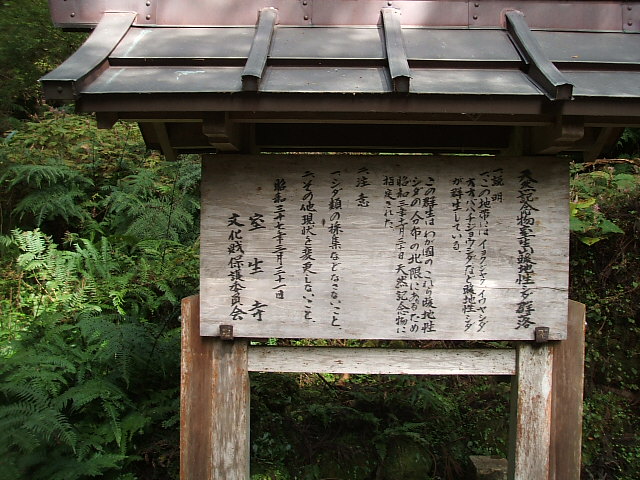 天然記念物室生山暖地性シダ群落
一、説明
この地帯には イヨクジャク イワヤシダ
オオバハチジョウシダなど暖地性シダ
が群生している。
この群生はわが国のこれら暖地性
シダの分布の北限にあるため
昭和三年三月三日 天然記念物に
指定された。
二、注意
一、シダ類の採集などなさないこと。
二、その他現状を変更しないこと。
昭和三十七年三月三十一日
室生寺
文化財保護委員会